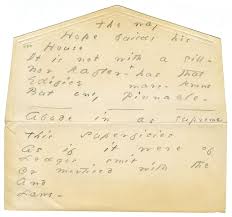 The way
Hope builds his
House
It is not with a sill –
Nor Rafter – has that
Edifice
But only Pinnacle –
Abode in as supreme
This superficies
As if it were of
Ledges smit
Or mortised with the
And
Laws –